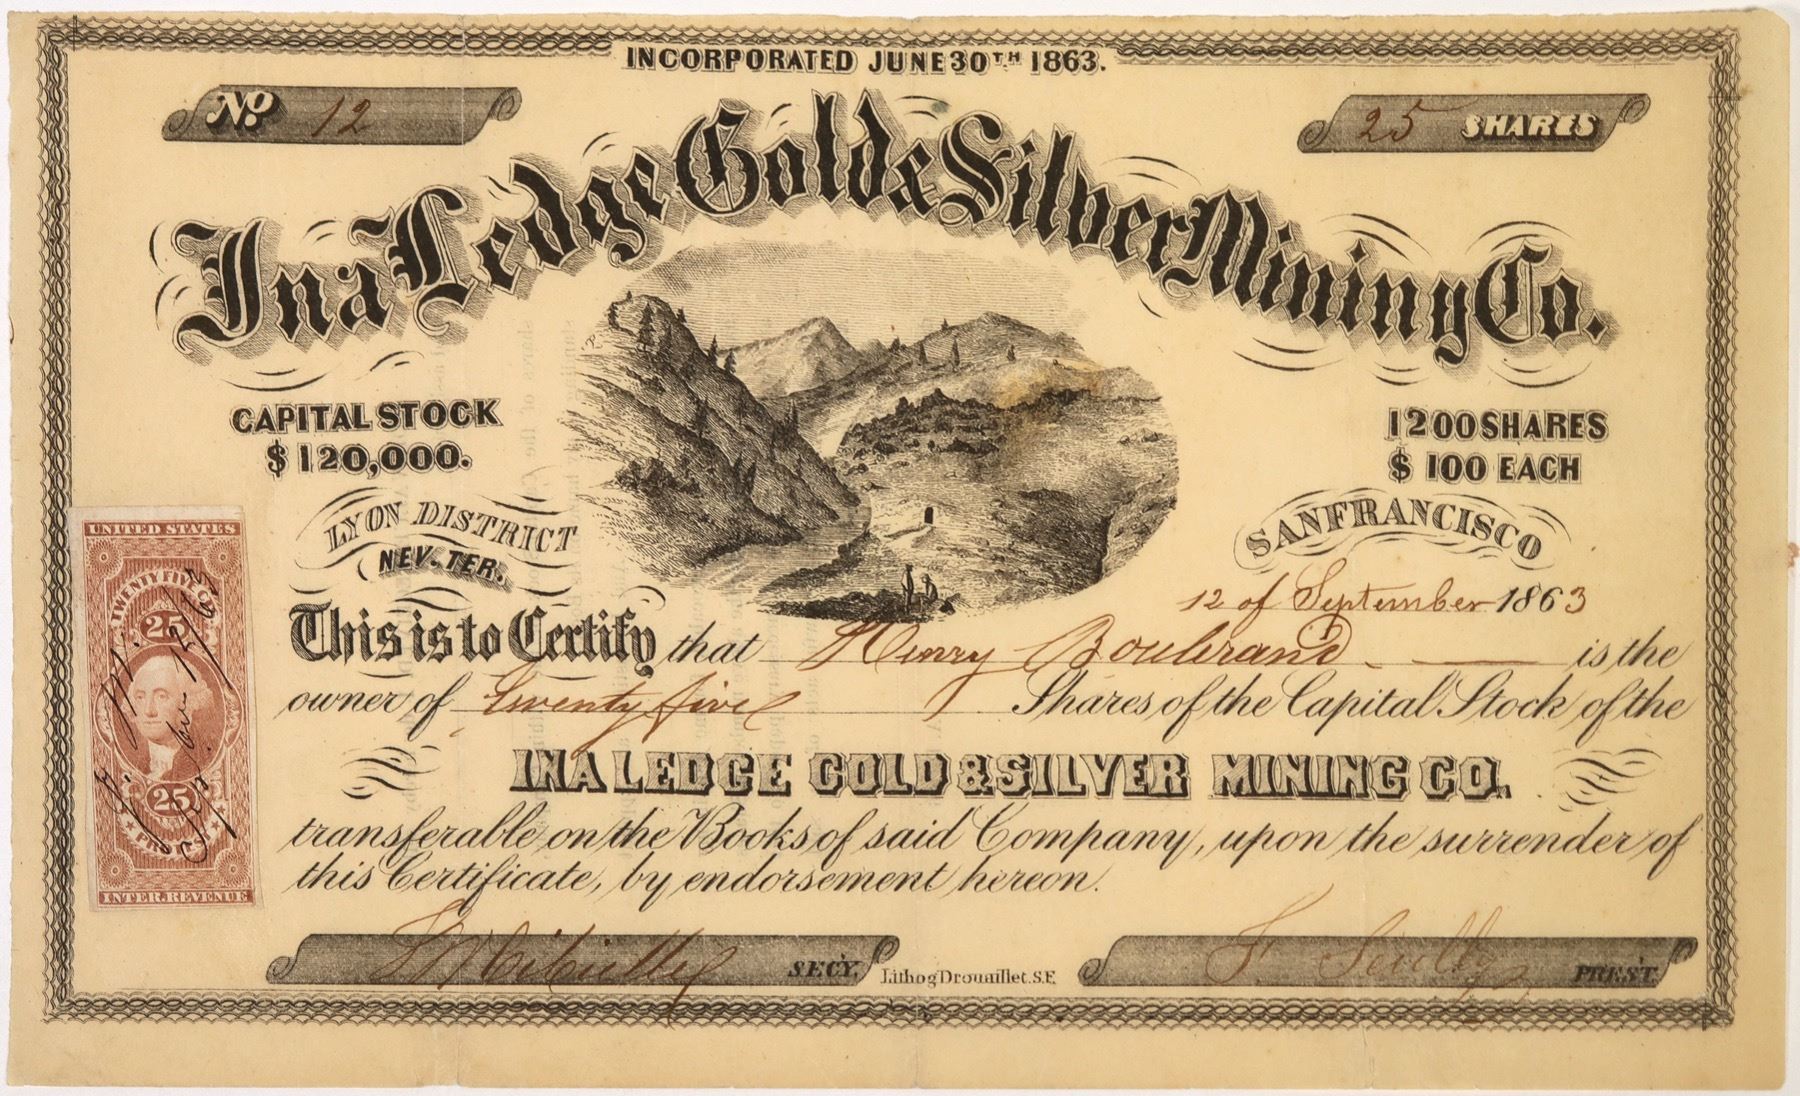 INCORPORATED JUNE 30TH 1863.
No. 12
25 SHARES
Ina Ledge Gold & Silver Mining Co.
CAPITAL STOCK
$120,000.
1200 SHARES
$100 EACH
LYON DISTRICT
NEV. TER.
SAN FRANCISCO
12 of September 1863
This is to Certify that Henry is the
owner of Twenty five Shares of the Capital Stock of the
INA LEDGE GOLD & SILVER MINING CO.
transferable on the Books of said Company, upon the surrender of
this Certificate, by endorsement hereon.
SECY.
Lithog Drouaillet. S.F.
F. Scully PREST.
UNITED STATES
TWENTY FIVE
25
25
INTER. REVENUE